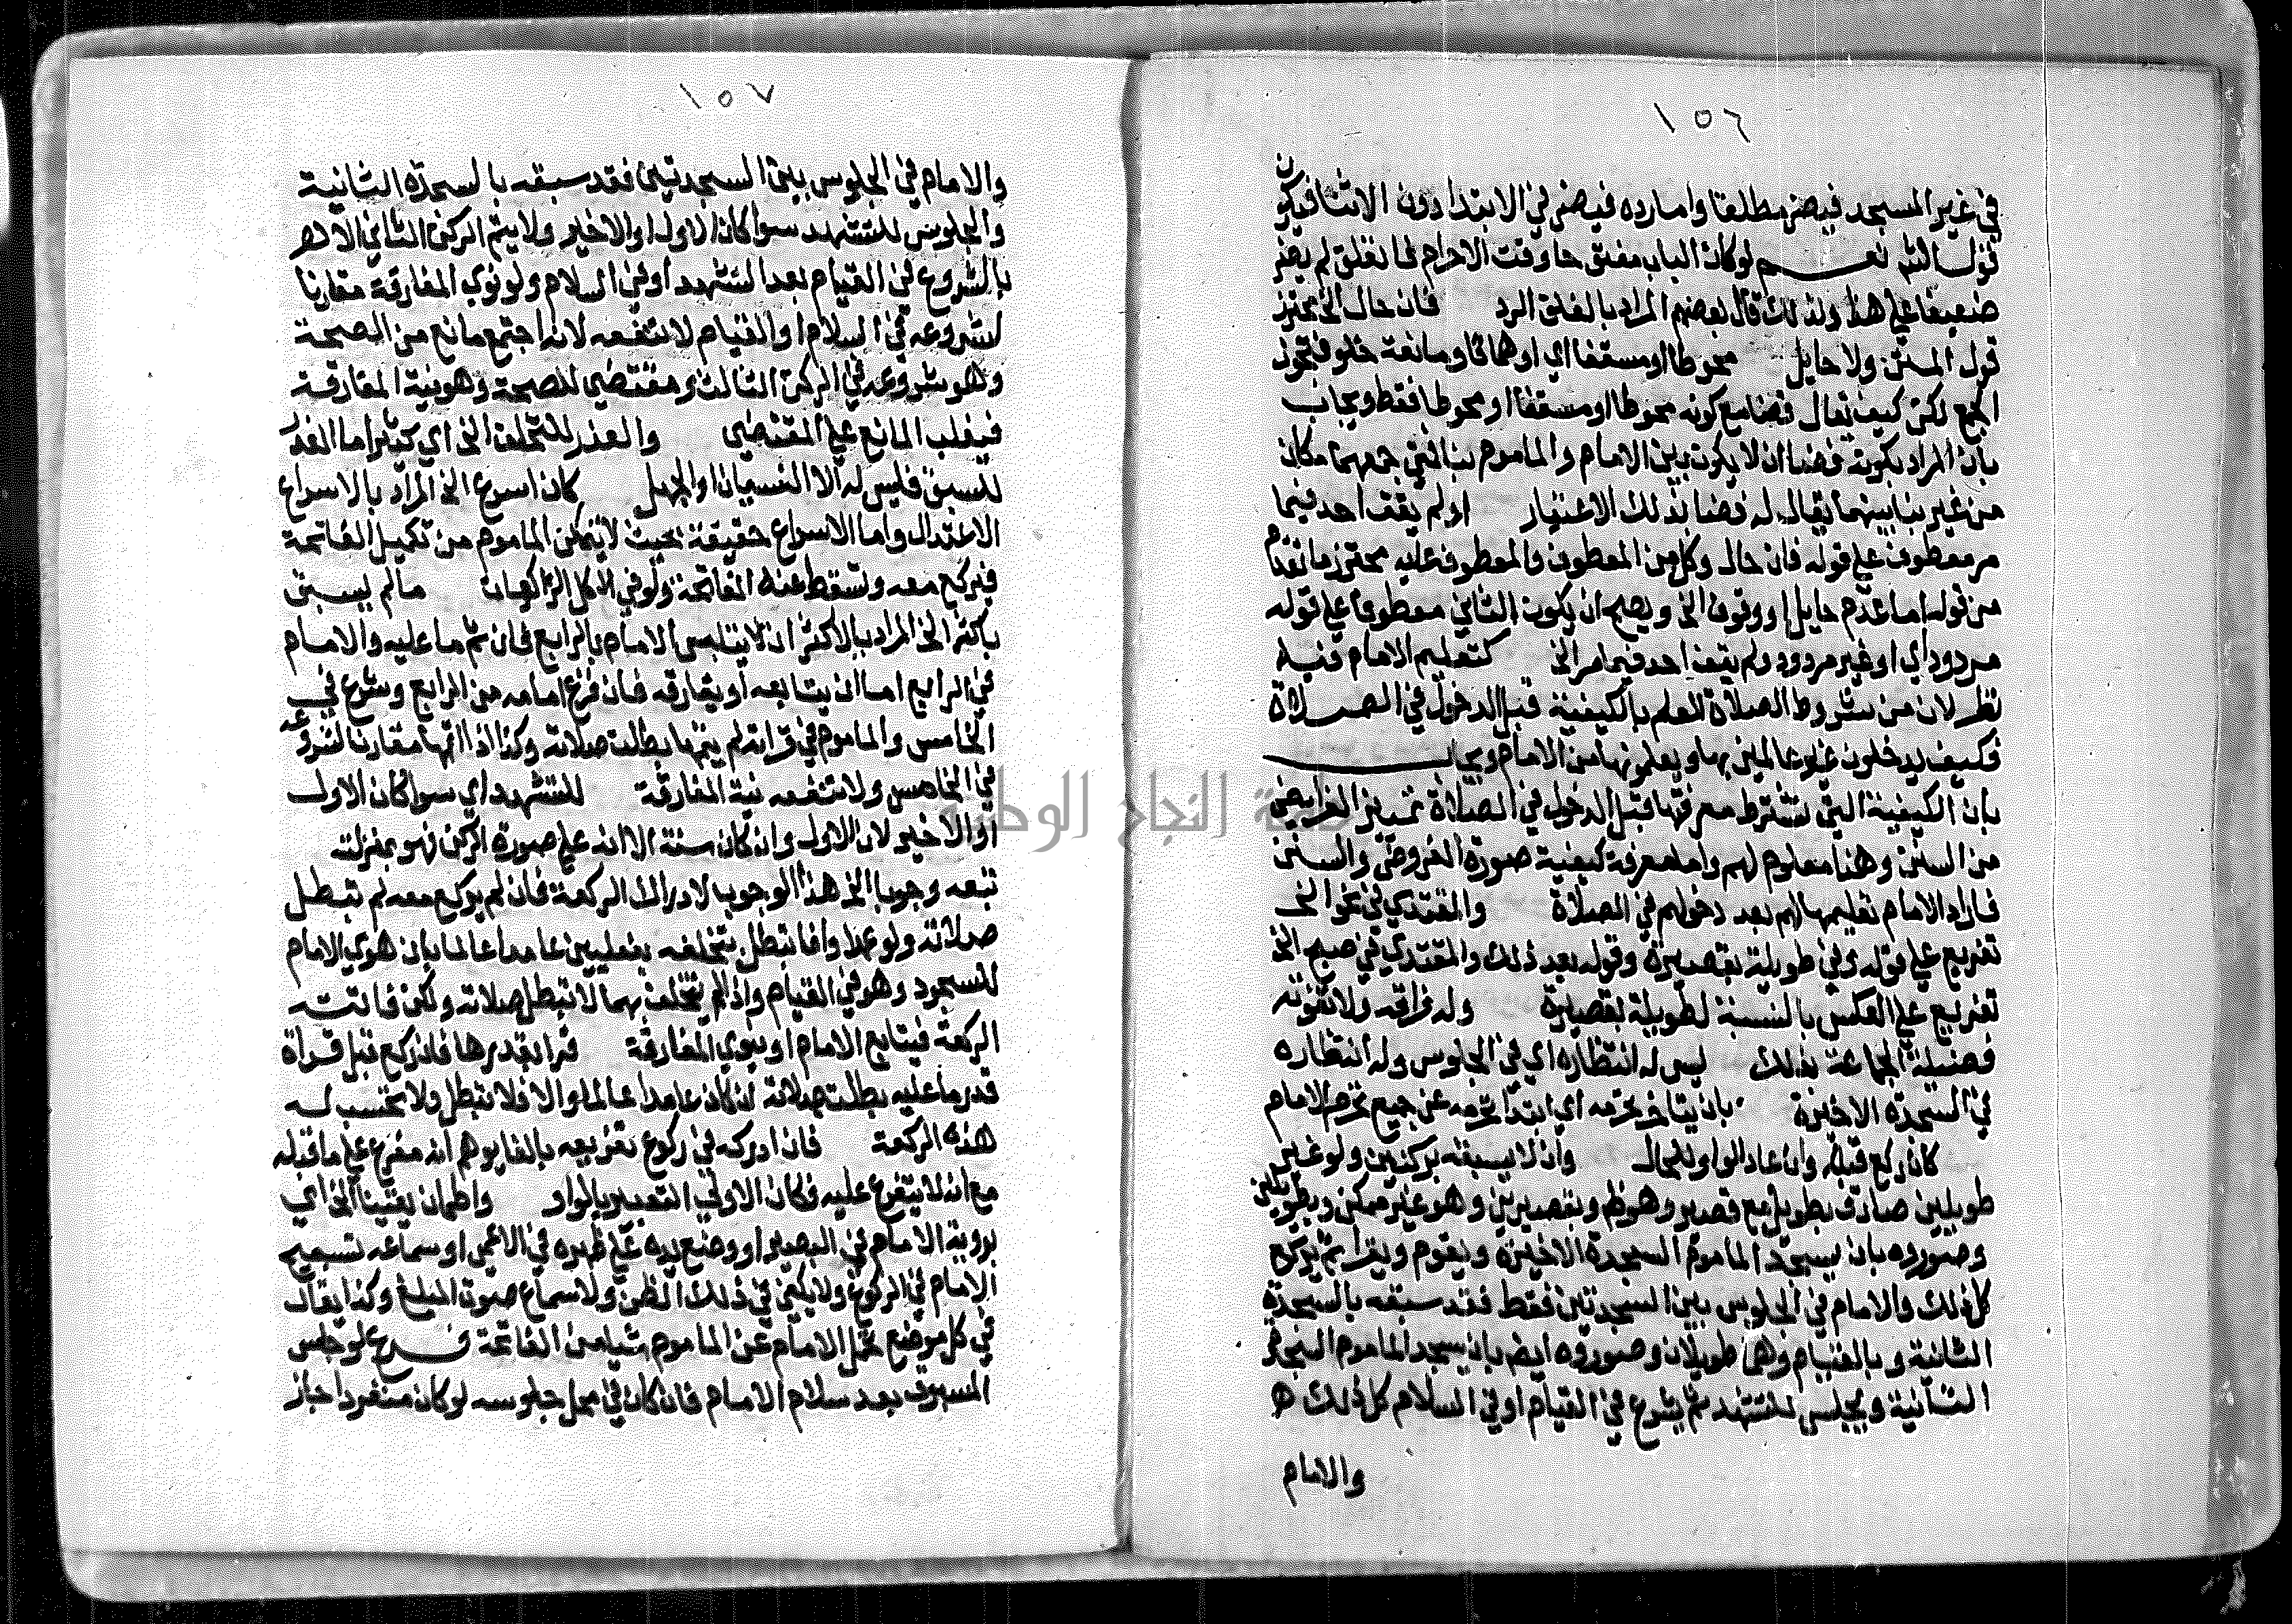 ١٥٦
في غير المسجد فيضر مطلقا واما رده فيضر في الابتدا دون الاثنا فيكون
قول الشم نعم لو كان الباب مفتوحا وقت الاحرام فانغلق لم يضر
ضعيفا على هذا ولذلك قال بعضهم المراد بالغلق الرد فان حال الخ محترز
قول المتن ولا حايل محوطا او مسقفا اي او هما ثا ومانعة خلو فتجوز
الجمع لكن كيف يقال فضا مع كونه محوطا او مسقفا او محوطا فقط ويجاب
بان المراد بكونه فضا ان لا يكون بين الامام والماموم بنا التي جمعهما مكان
من غير بنا بينهما يقال له فضا بذلك الاعتبار او لم يقف احد فيما
مر معطوف على قوله فان حال وكل من المعطوف والمعطوف عليه محترز ما تقدم
من قوله اما عدم حايل او وقوف الخ ويصح ان يكون الثاني معطوفا على قوله
مردود اي او غير مردود ولم يقف احد فيما مر الخ كتعليم الامام فيه
نظر لان من شروط الصلاة العلم بالكيفية قبل الدخول في الصلاة
فكيف يدخلون غير عالمين بها ويعلمونها من الامام ويجاب
بان الكيفية التي تشترط معرفتها قبل الدخول في الصلاة تمييز الفرايض
من السنن وهنا معلوم لهم واما معرفة كيفية صورة الفروض والسنن
فاراد الامام تعليمها لهم بعد دخولهم في الصلاة والمقتدي في نحو الخ
تفريع على قوله وفي طويلة بقصيرة وقوله بعد ذلك والمقتدي في صبح الخ
تفريع على العكس بالنسبة لطويلة بقصيرة وله فراقه ولا تفوته
فضيلة الجماعة بذلك ليس له انتظاره اي في الجلوس وله انتظاره
في السجدة الاخيرة بان يتاخر تحرمه اي ابتدا تحرمه عن جميع تحرم الامام
كان ركع قبله وان عاد الواو للحال وان لا يسبقه بركنين ولو غير
طويلين صادق بطويل مع قصير وهو ظ وبقصيرين وهو غير ممكن وبطويلين
وصوروه بان يسجد الماموم السجدة الاخيرة ويقوم ويقرا ثم يركع
كل ذلك والامام في الجلوس بين السجدتين فقط فقد سبقه بالسجدة
الثانية وبالقيام وهما طويلان وصوروه ايضا بان يسجد الماموم السجدة
الثانية ويجلس للتشهد ثم يشرع في القيام او في السلام كل ذلك
والامام
١٥٧
والامام في الجلوس بين السجدتين فقد سبقه بالسجدة الثانية
والجلوس للتشهد سوا كان الاول او الاخير ولا يتم الركن الثاني الا
بالشروع في القيام بعد التشهد او في السلام ولو نوى المفارقة مقارنا
لشروعه في السلام او القيام لا تنفعه لانه اجتمع مانع من الصحة
وهو شروعه في الركن الثالث ومقتضي للصحة وهو نية المفارقة
فيغلب المانع على المقتضي والعذر للتخلف الخ اي كثير اما العذر
للسبق فليس له الا النسيان او الجهل كان اسرع الخ المراد بالاسراع
الاعتدال واما الاسراع حقيقة بحيث لا يتمكن الماموم من تكميل الفاتحة
فيركع معه وتسقط عنه الفاتحة ولو في كل الركعات مالم يسبق
باكثر الخ المراد بالاكثر ان لا يتلبس الامام بالرابع فان تم ما عليه والامام
في الرابع اما ان يتابعه او يفارقه فان فرغ امامه من الرابع وشرع في
الخامس والماموم في قراته لم يتمها بطلت صلاته وكذا اذا اتمها مقارنا لشروعه
في الخامس ولا تنفعه نية المفارقة للتشهد اي سوا كان الاول
او الاخير لان الاول وان كان سنة الا انه على صورة الركن فهو بمنزلته
تبعه وجوبا الخ هذا الوجوب لادراك الركعة فان لم يركع معه لم تبطل
صلاته ولو عمدا وانما تبطل بتخلفه بفعليين عامدا عالما بان هوى الامام
للسجود وهو في القيام واذا لم يتخلف بهما لا تبطل صلاته ولكن فاتته
الركعة فيتابع الامام او ينوي المفارقة قرا بقدرها فان ركع قبل قراة
قدر ما عليه بطلت صلاته ان كان عامدا عالما والا فلا تبطل ولا تحسب له
هذه الركعة فان ادركه في ركوع تفريعه بالفا يوهم انه مفرع على ما قبله
مع انه لا يتفرع عليه فكان الاولى التعبير بالواو واطمان يقينا الخ اي
بروية الامام في البصير او وضع يده على ظهره في الاعمى او سماعه تسبيح
الامام في الركوع ولا يكفي في ذلك الظن ولا سماع صوت المبلغ وكذا يقال
في كل موضع تحمل الامام عن الماموم شيا من الفاتحة فرع لو جلس
المسبوق بعد سلام الامام فان كان في محل جلوسه لو كان منفردا جاز
جامعة النجاح الوطنية